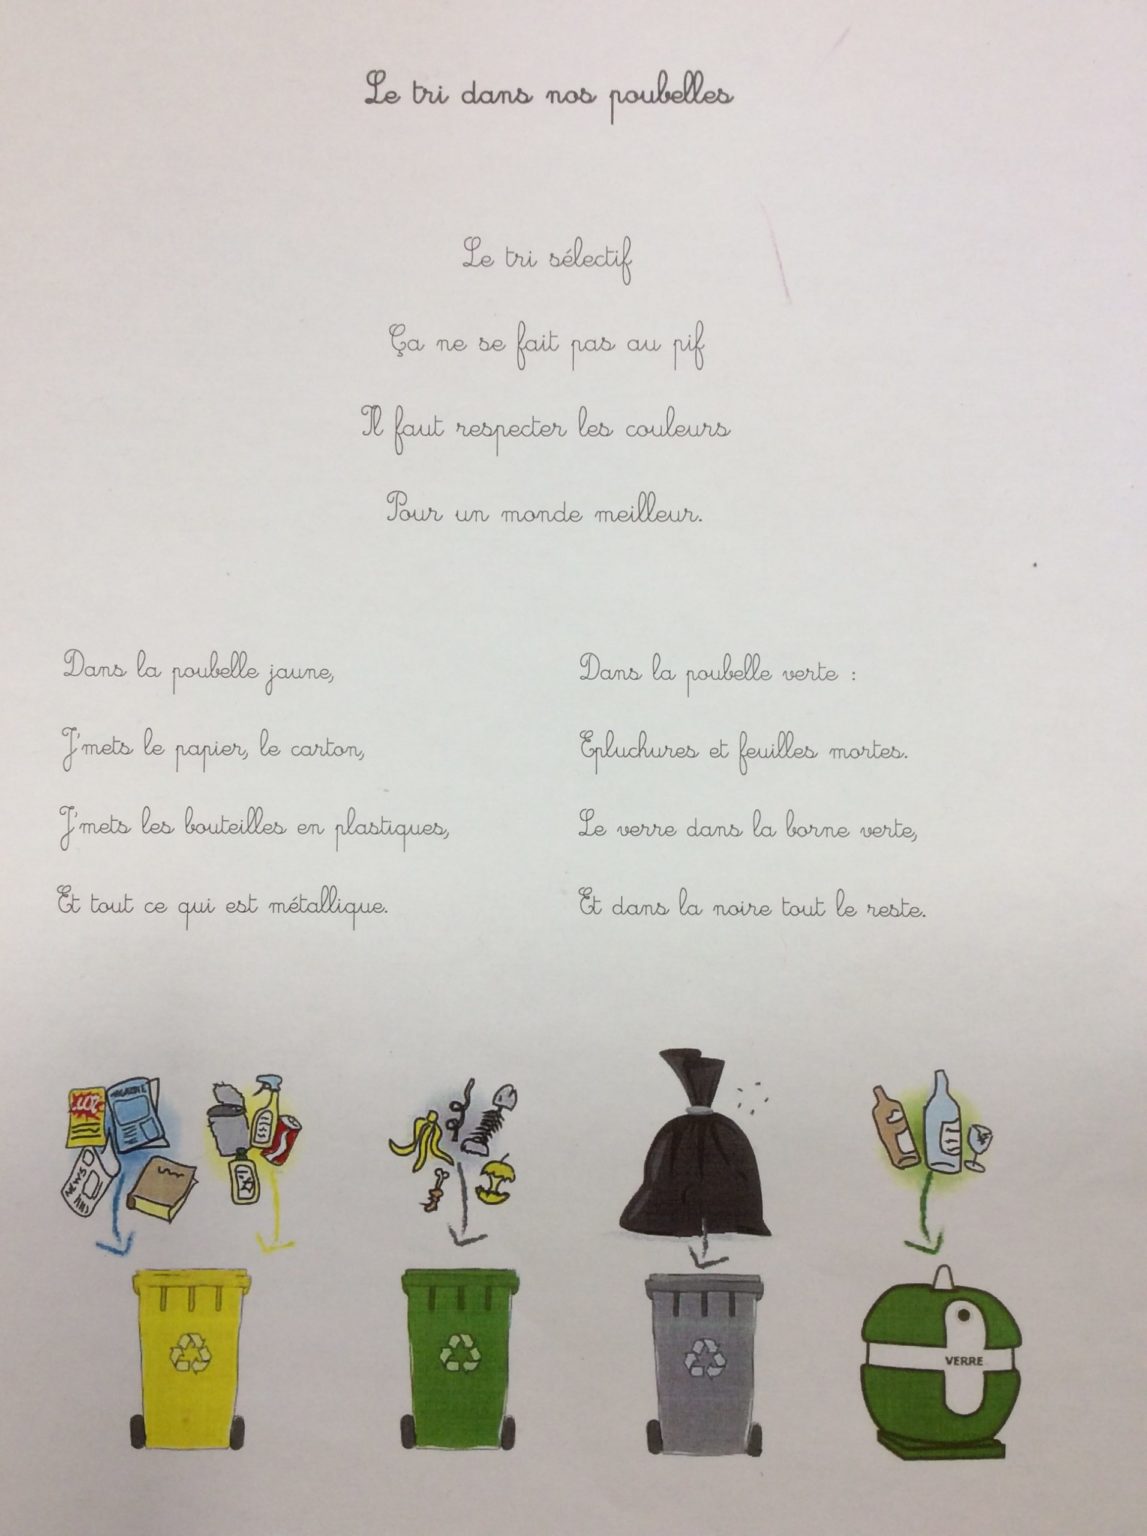 Le tri dans nos poubelles
Le tri sélectif
Ça ne se fait pas au pif
Il faut respecter les couleurs
Pour un monde meilleur.
Dans la poubelle jaune,
J'mets le papier, le carton,
J'mets les bouteilles en plastiques,
Et tout ce qui est métallique.
Dans la poubelle verte :
Epluchures et feuilles mortes.
Le verre dans la borne verte,
Et dans la noire tout le reste.
NEWS
VERRE